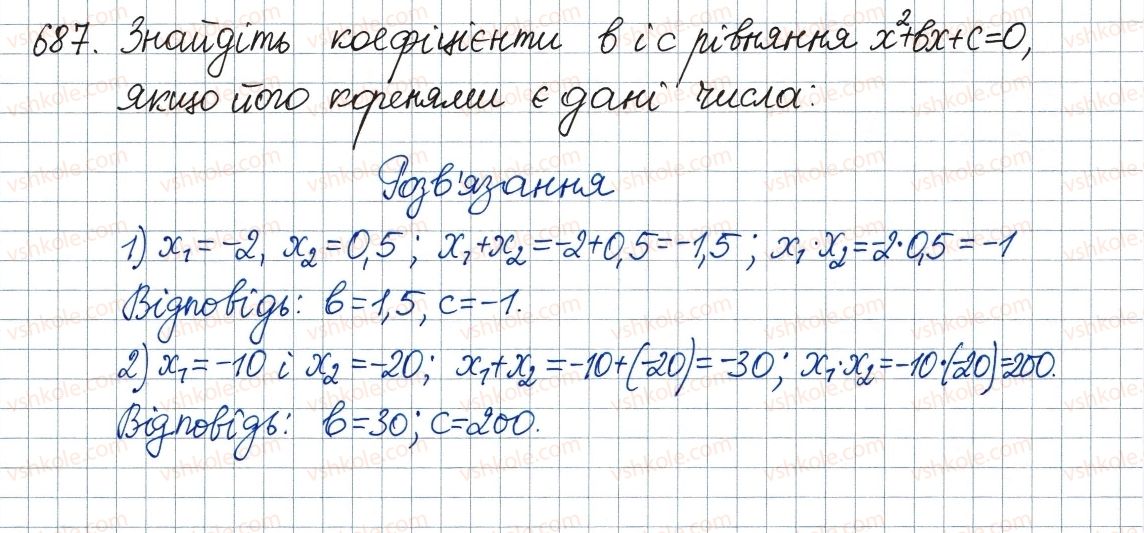 687. Знайдіть коефіцієнти в і с рівняння x²+вx+c=0,
якщо його коренями є дані числа:
Розв'язання
1) x₁ = -2, x₂ = 0,5 ; x₁+x₂ = -2+0,5 = -1,5 ; x₁·x₂ = -2·0,5 = -1
Відповідь: в = 1,5, с = -1.
2) x₁ = -10 і x₂ = -20; x₁+x₂ = -10+(-20) = -30; x₁·x₂ = -10·(-20) = 200.
Відповідь: в = 30; с = 200.